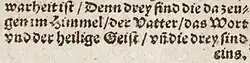 warheit ist / Denn drey sind die da zeu-
gen im Himmel / der Vatter / das Wort
vnd der heilige Geist / vñ die drey sind
eins.